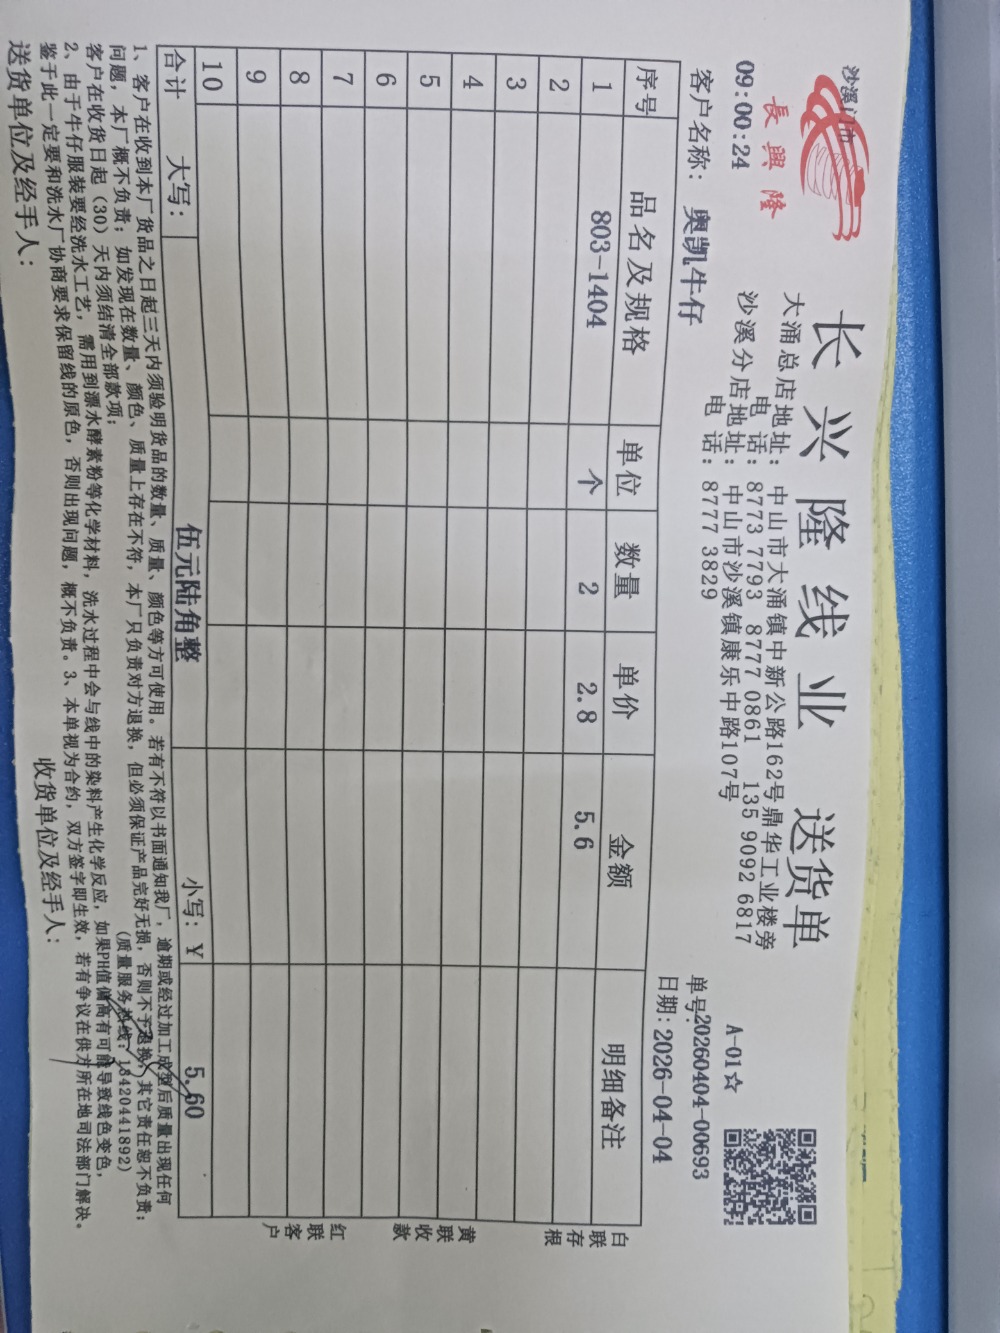 沙溪门市
長興隆
长兴隆线业 送货单
大涌总店地址：中山市大涌镇中新公路162号鼎华工业楼旁
电 话：8773 7793 8777 0861 135 9092 6817
沙溪分店地址：中山市沙溪镇康乐中路107号
电 话：8777 3829
09:00:24
A-01☆
单号：20260404-00693
客户名称：奥凯牛仔
日期：2026-04-04
序号 品名及规格 单位 数量 单价 金额 明细备注
1 803-1404 个 2 2.8 5.6
2
3
4
5
6
7
8
9
10
合计 大写： 伍元陆角整 小写：￥ 5.60
白联存根
黄联收款
红联客户
1、客户在收到本厂货品之日起三天内须验明货品的数量、质量、颜色等方可使用。若有不符以书面通知我厂，逾期或经过加工成型后质量出现任何
问题，本厂概不负责；如发现在数量、颜色、质量上存在不符，本厂只负责对方退换，但必须保证产品完好无损，否则不予退换，其它责任恕不负责；
客户在收货日起（30）天内须结清全部款项； （质量服务热线：13420441892）
2、由于牛仔服装要经洗水工艺，需用到漂水酵素粉等化学材料，洗水过程中会与线中的染料产生化学反应，如果PH值偏高有可能导致线色变色，
鉴于此一定要和洗水厂协商要求保留线的原色，否则出现问题，概不负责。3、本单视为合约，双方签字即生效，若有争议在供方所在地司法部门解决。
送货单位及经手人： 收货单位及经手人：